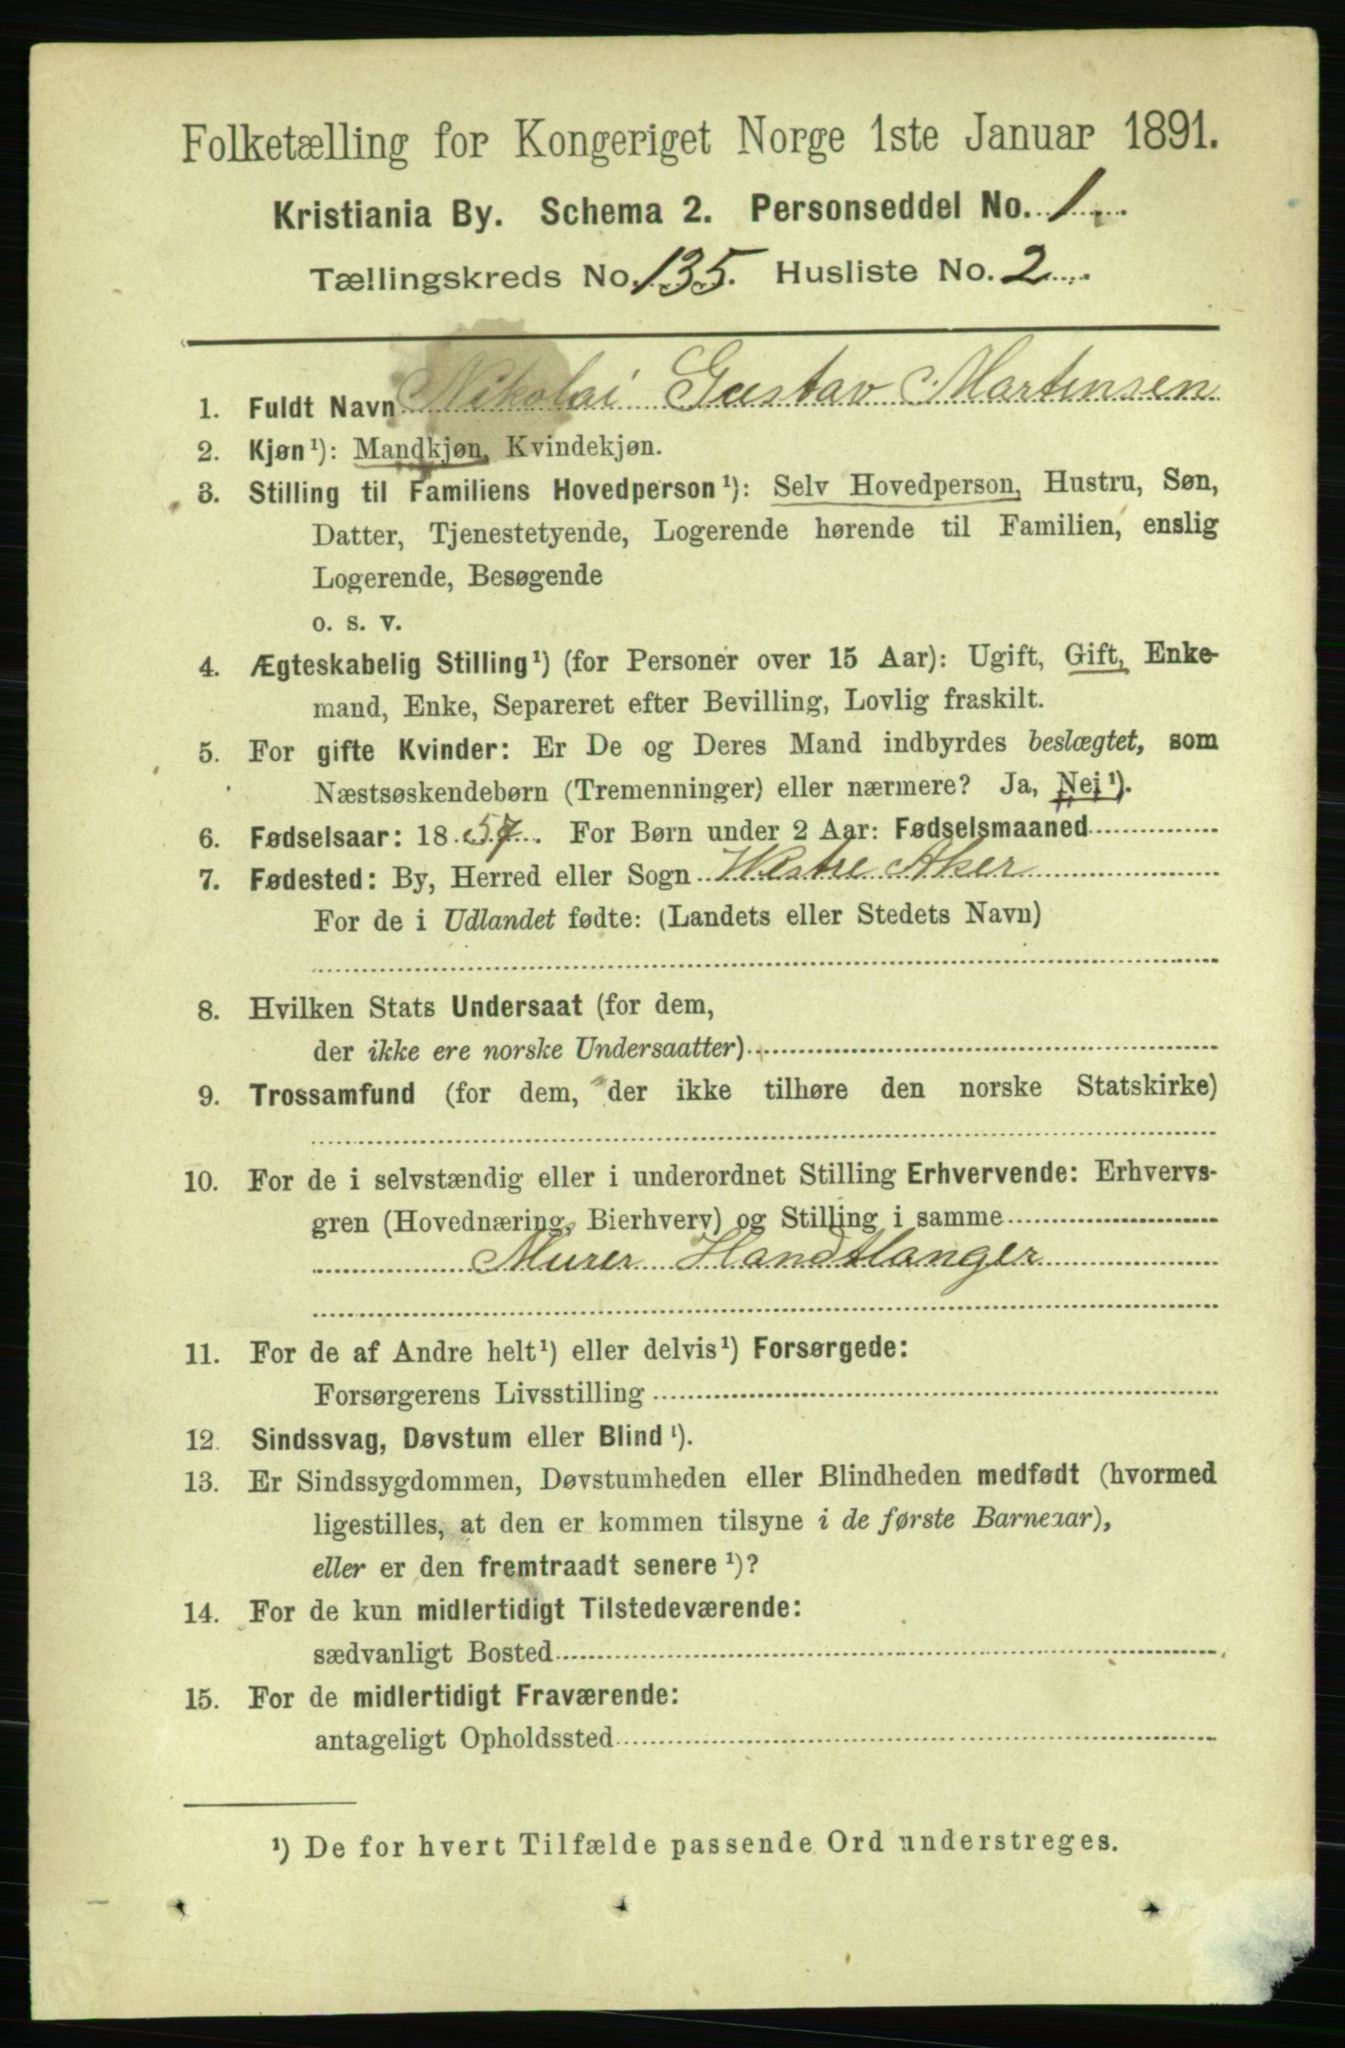 Folketælling for Kongeriget Norge 1ste Januar 1891.
Kristiania By. Schema 2. Personseddel No. 1.
Tællingskreds No. 135. Husliste No. 2
1. Fuldt Navn Nikolai Gustav Martinsen
2. Kjøn¹): Mandkjøn, Kvindekjøn.
3. Stilling til Familiens Hovedperson¹): Selv Hovedperson, Hustru, Søn,
Datter, Tjenestetyende, Logerende hørende til Familien, enslig
Logerende, Besøgende
o. s. v.
4. Ægteskabelig Stilling¹) (for Personer over 15 Aar): Ugift, Gift, Enke-
mand, Enke, Separeret efter Bevilling, Lovlig fraskilt.
5. For gifte Kvinder: Er De og Deres Mand indbyrdes beslægtet, som
Næstsøskendebørn (Tremenninger) eller nærmere? Ja, Nej¹).
6. Fødselsaar: 1857. For Børn under 2 Aar: Fødselsmaaned
7. Fødested: By, Herred eller Sogn Westre Aker
For de i Udlandet fødte: (Landets eller Stedets Navn)
8. Hvilken Stats Undersaat (for dem,
der ikke ere norske Undersaatter)
9. Trossamfund (for dem, der ikke tilhøre den norske Statskirke)
10. For de i selvstændig eller i underordnet Stilling Erhvervende: Erhvervs-
gren (Hovednæring, Bierhverv) og Stilling i samme
Murer Handtlanger
11. For de af Andre helt¹) eller delvis¹) Forsørgede:
Forsørgerens Livsstilling
12. Sindssvag, Døvstum eller Blind¹).
13. Er Sindssygdommen, Døvstumheden eller Blindheden medfødt (hvormed
ligestilles, at den er kommen tilsyne i de første Barneaar),
eller er den fremtraadt senere¹)?
14. For de kun midlertidigt Tilstedeværende:
sædvanligt Bosted
15. For de midlertidigt Fraværende:
antageligt Opholdssted
¹) De for hvert Tilfælde passende Ord understreges.